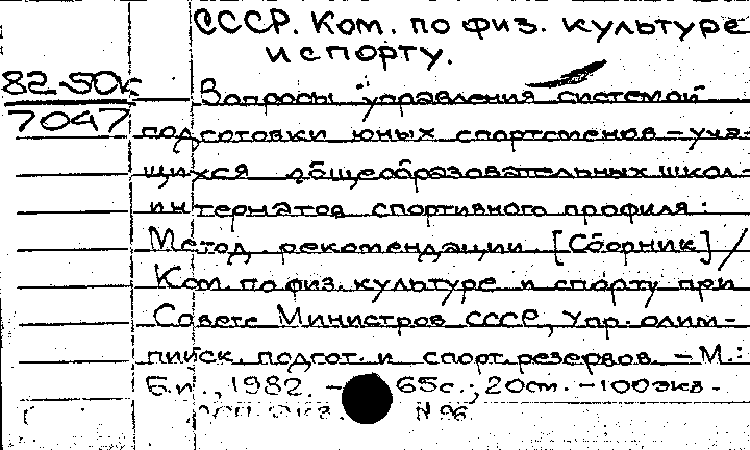 СССР. Ком. по физ. культуре
и спорту.
82-50к
7047
Вопросы управления системой
подготовки юных спортсменов - уча-
щихся общеобразовательных школ-
интернатов спортивного профиля:
Метод. рекомендации. [Сборник] /
Ком. по физ. культуре и спорту при
Совете Министров СССР, Упр. олим-
пийск. подгот. и спорт. резервов. - М.:
Б.и., 1982. - 65с.; 20см. - 100экз.
N 96